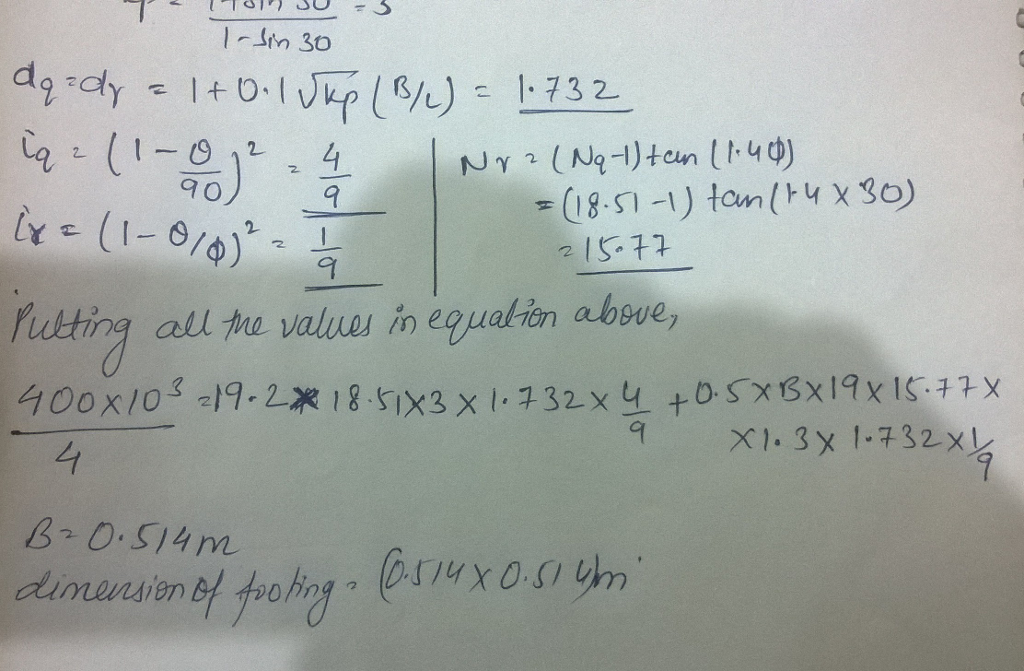 1-Sin 30
dq=dγ = 1+0.1 √Kp (B/L) = 1.732
iq = (1-θ/90)² = 4/9
iγ = (1-θ/φ)² = 1/9
Nγ = (Nq-1) tan (1.4φ)
=(18.51-1) tan(1.4 X 30)
= 15.77
Putting all the values in equation above,
400X10³/4 =19.2 * 18.51X3 X 1.732 X 4/9 + 0.5 X B X 19 X 15.77 X
X 1.3 X 1.732 X 1/9
B=0.514m
dimension of footing = (0.514 X 0.514)m